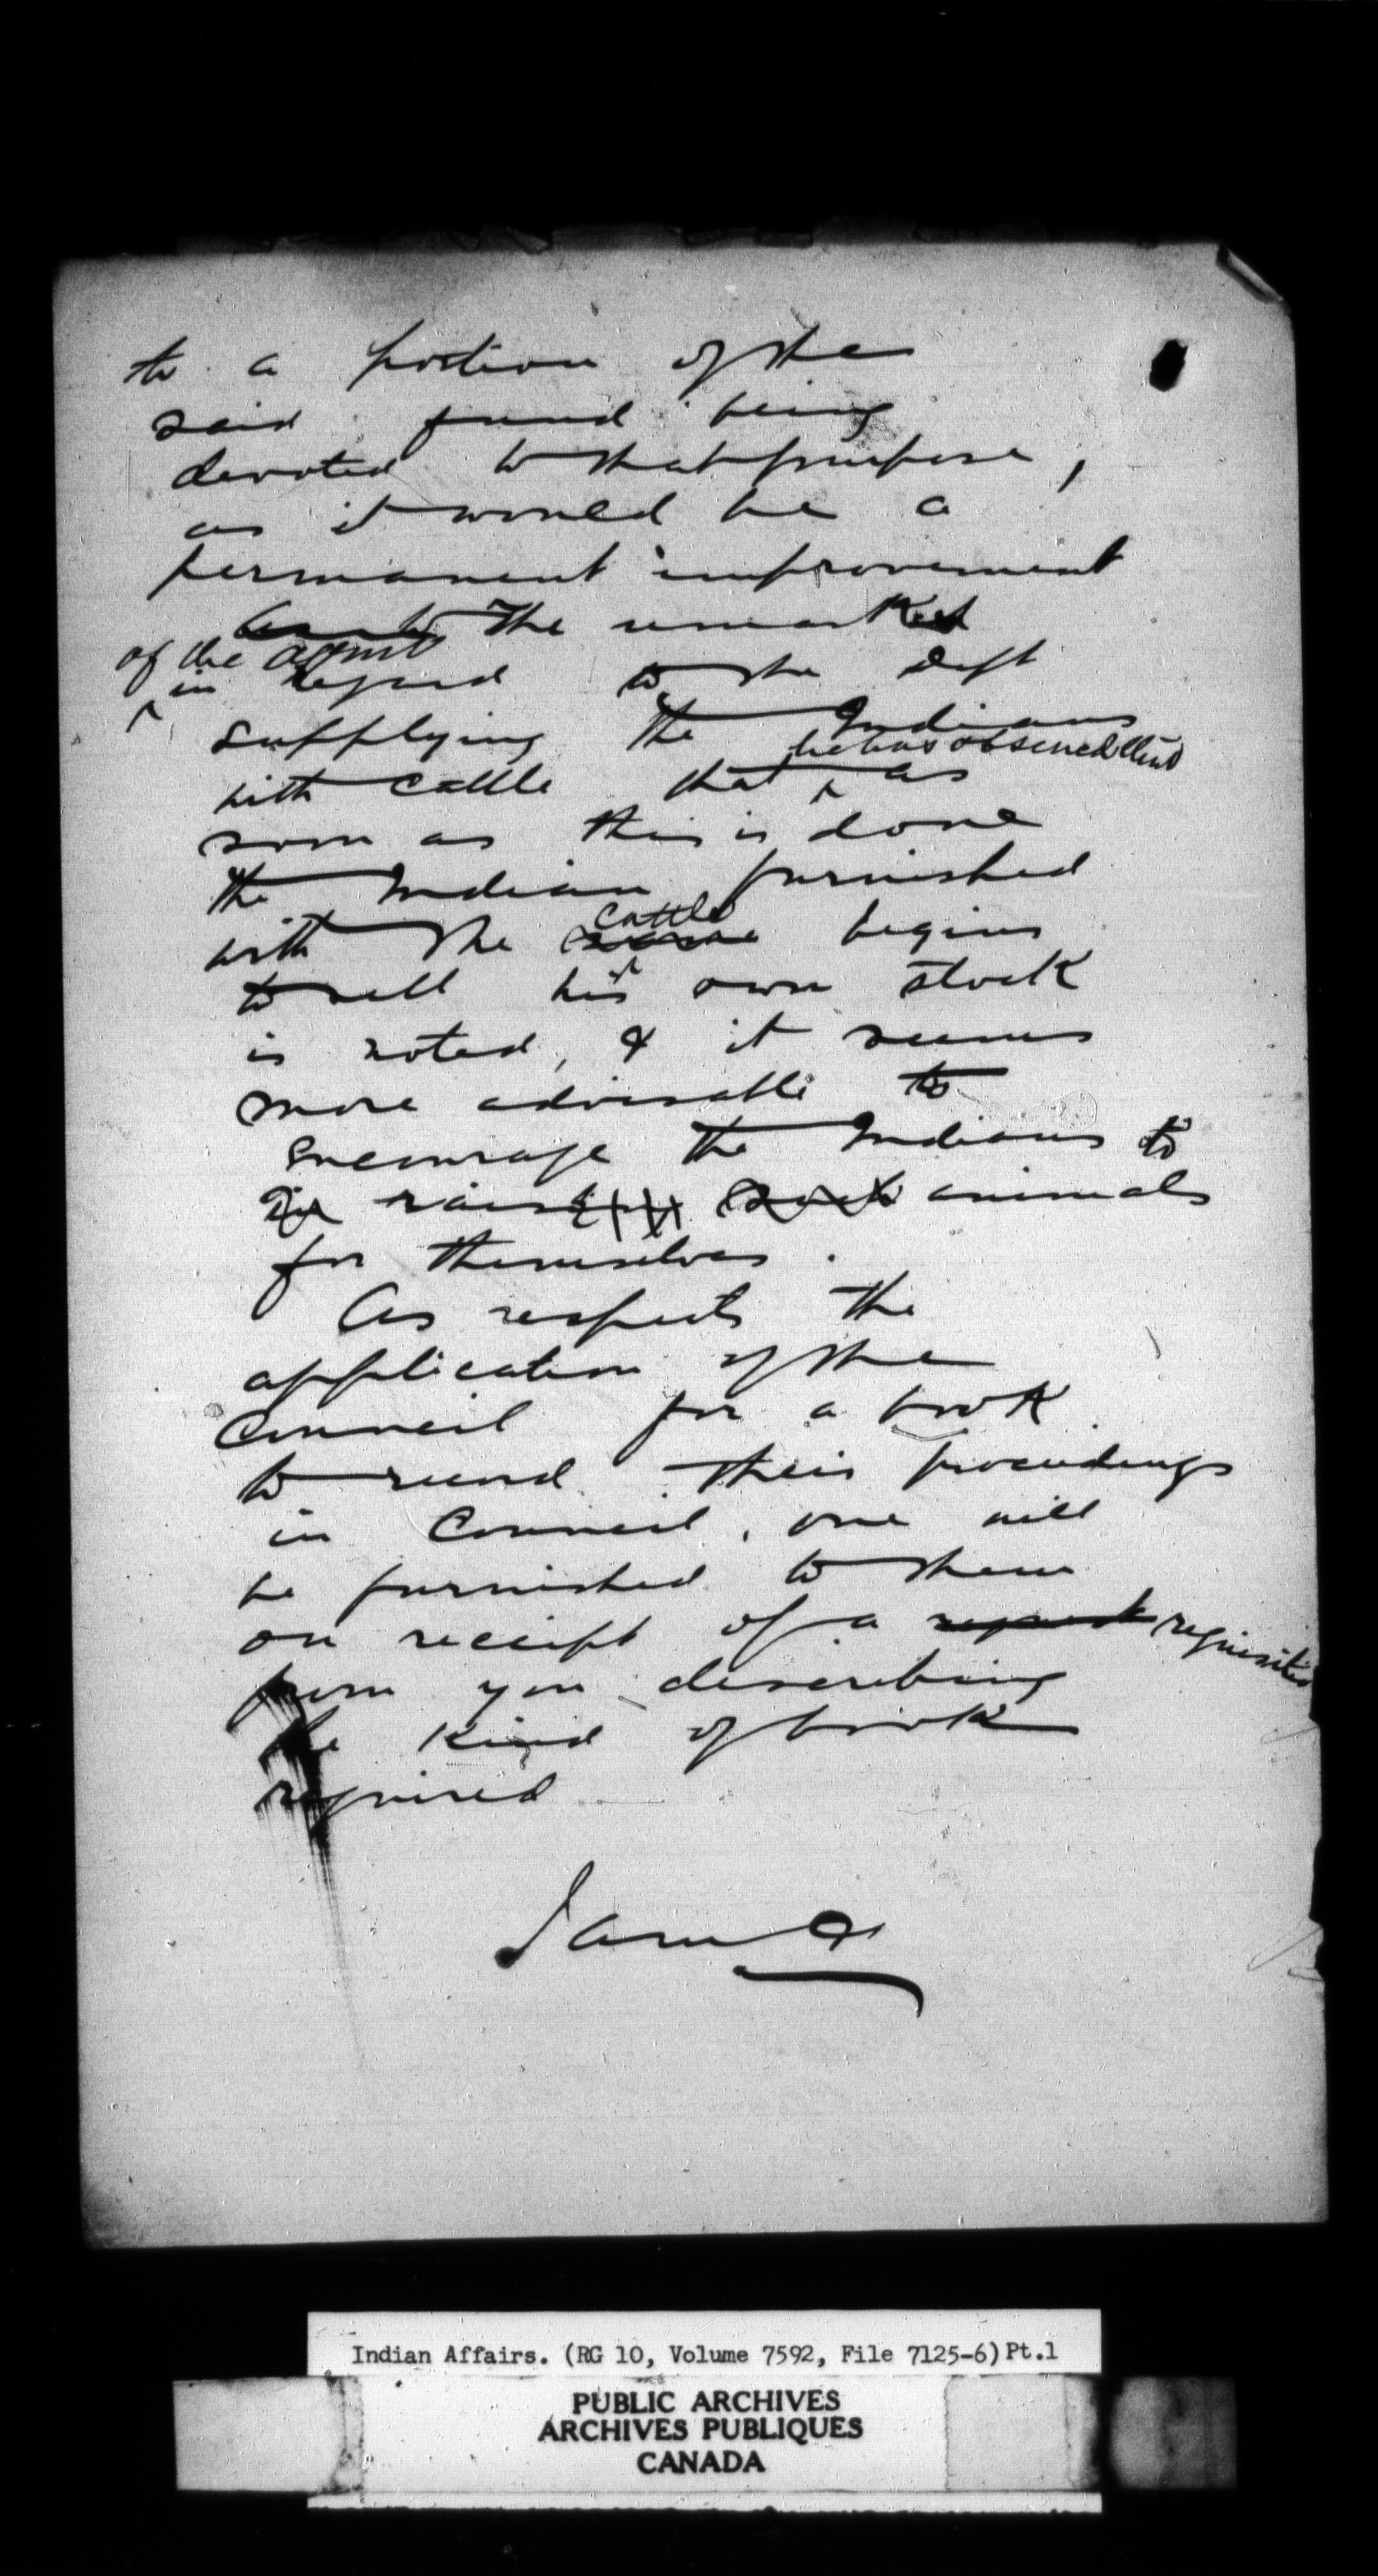 to a portion of the
said fund being
devoted to that purpose,
as it would be a
permanent improvement
As to The remark
of the agent
in regard to the Dept
supplying the Indians
he has observed that
with cattle that as
soon as this is done
the Indian furnished
cattle
with the same begins
to sell his own stock
is noted, & it seems
more advisable to
encourage the Indians to
in raising such animals
for themselves.
As respects the
application of the
Council for a book
to record their proceedings
in Council, one will
be furnished to them
on receipt of a request requisition
from you describing
the kind of book
required
Indian Affairs. (RG 10, Volume 7592, File 7125-6) Pt.1
PUBLIC ARCHIVES
ARCHIVES PUBLIQUES
CANADA